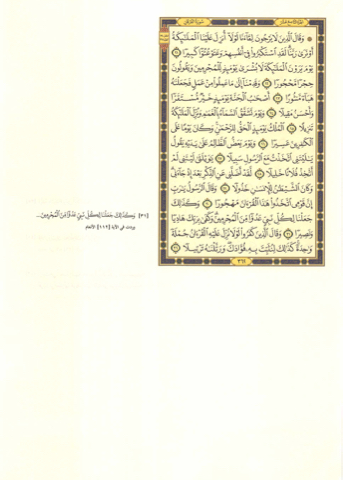 وَقَالَ ٱلَّذِينَ لَا يَرْجُونَ لِقَآءَنَا لَوْلَآ أُنزِلَ عَلَيْنَا ٱلْمَلَٰٓئِكَةُ
أَوْ نَرَىٰ رَبَّنَا لَقَدِ ٱسْتَكْبَرُوا۟ فِىٓ أَنفُسِهِمْ وَعَتَوْ عُتُوًّا كَبِيرًا ٢١
يَوْمَ يَرَوْنَ ٱلْمَلَٰٓئِكَةَ لَا بُشْرَىٰ يَوْمَئِذٍ لِّلْمُجْرِمِينَ وَيَقُولُونَ
حِجْرًا مَّحْجُورًا ٢٢ وَقَدِمْنَآ إِلَىٰ مَا عَمِلُوا۟ مِنْ عَمَلٍ فَجَعَلْنَٰهُ
هَبَآءً مَّنثُورًا ٢٣ أَصْحَٰبُ ٱلْجَنَّةِ يَوْمَئِذٍ خَيْرٌ مُّسْتَقَرًّا
وَأَحْسَنُ مَقِيلًا ٢٤ وَيَوْمَ تَشَقَّقُ ٱلسَّمَآءُ بِٱلْغَمَٰمِ وَنُزِّلَ ٱلْمَلَٰٓئِكَةُ
تَنزِيلًا ٢٥ ٱلْمُلْكُ يَوْمَئِذٍ ٱلْحَقُّ لِلرَّحْمَٰنِ وَكَانَ يَوْمًا عَلَى
ٱلْكَٰفِرِينَ عَسِيرًا ٢٦ وَيَوْمَ يَعَضُّ ٱلظَّالِمُ عَلَىٰ يَدَيْهِ يَقُولُ
يَٰلَيْتَنِى ٱتَّخَذْتُ مَعَ ٱلرَّسُولِ سَبِيلًا ٢٧ يَٰوَيْلَتَىٰ لَيْتَنِى لَمْ
أَتَّخِذْ فُلَانًا خَلِيلًا ٢٨ لَّقَدْ أَضَلَّنِى عَنِ ٱلذِّكْرِ بَعْدَ إِذْ جَآءَنِى
وَكَانَ ٱلشَّيْطَٰنُ لِلْإِنسَٰنِ خَذُولًا ٢٩ وَقَالَ ٱلرَّسُولُ يَٰرَبِّ
إِنَّ قَوْمِى ٱتَّخَذُوا۟ هَٰذَا ٱلْقُرْءَانَ مَهْجُورًا ٣٠ وَكَذَٰلِكَ
جَعَلْنَا لِكُلِّ نَبِىٍّ عَدُوًّا مِّنَ ٱلْمُجْرِمِينَ وَكَفَىٰ بِرَبِّكَ هَادِيًا
وَنَصِيرًا ٣١ وَقَالَ ٱلَّذِينَ كَفَرُوا۟ لَوْلَا نُزِّلَ عَلَيْهِ ٱلْقُرْءَانُ جُمْلَةً
وَٰحِدَةً كَذَٰلِكَ لِنُثَبِّتَ بِهِۦ فُؤَادَكَ وَرَتَّلْنَٰهُ تَرْتِيلًا ٣٢
[٣١] وَكَذَٰلِكَ جَعَلْنَا لِكُلِّ نَبِىٍّ عَدُوًّا مِّنَ ٱلْمُجْرِمِينَ...
وردت في الآية [١١٢] الأنعام